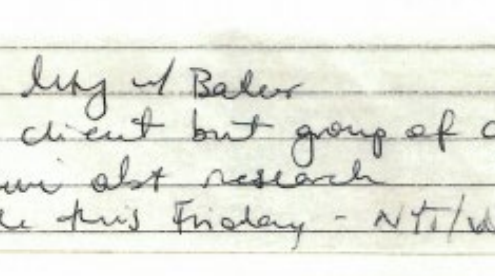 Mtg w/ Baker
client but group of c
abt research
this Friday - NYT/W